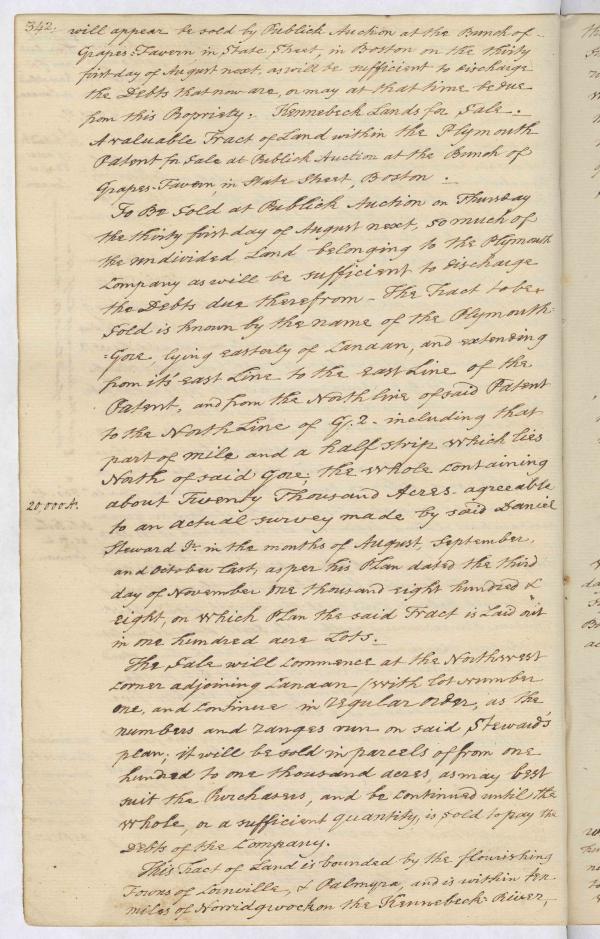 342. will appear be sold by Publick Auction at the Bunch of
Grapes-Tavern in State Street, in Boston on the thirty
first day of August next, as will be sufficient to discharge
the Debts that now are, or may at that time be due
from this Propriety. Kennebeck Lands for Sale.
A valuable Tract of Land within the Plymouth
Patent for Sale at Publick Auction at the Bunch of
Grapes-Tavern in State Street, Boston.
To Be Sold at Publick Auction on Thursday
the thirty first day of August next, so much of
the undivided Land belonging to the Plymouth
Company as will be sufficient to discharge
the Debts due therefrom - The Tract to be
Sold is known by the name of the Plymouth
=Gore, lying easterly of Canaan, and extending
from its' east Line to the east Line of the
Patent, and from the North line of said Patent
to the North Line of G. 2 - including that
part of mile and a half strip which lies
North of said Gore; the whole containing
20,000 A. about Twenty Thousand Acres - agreeable
to an actual survey made by said Daniel
Steward Jr. in the months of August, September,
and October last, as per his Plan dated the third
day of November one thousand eight hundred &
eight, on which Plan the said Tract is Laid out
in one hundred acre Lots.
The Sale will commence at the Northwest
corner adjoining Canaan, with lot number
one, and continue in regular order, as the
numbers and ranges run on said Steward's
plan; it will be sold in parcels of from one
hundred to one thousand acres, as may best
suit the Purchasers, and be continued until the
whole, or a sufficient quantity, is sold to pay the
Debts of the Company.
This Tract of Land is bounded by the flourishing
Towns of Corinville, & Palmyra, and is within ten
miles of Norridgwock on the Kennebeck River,